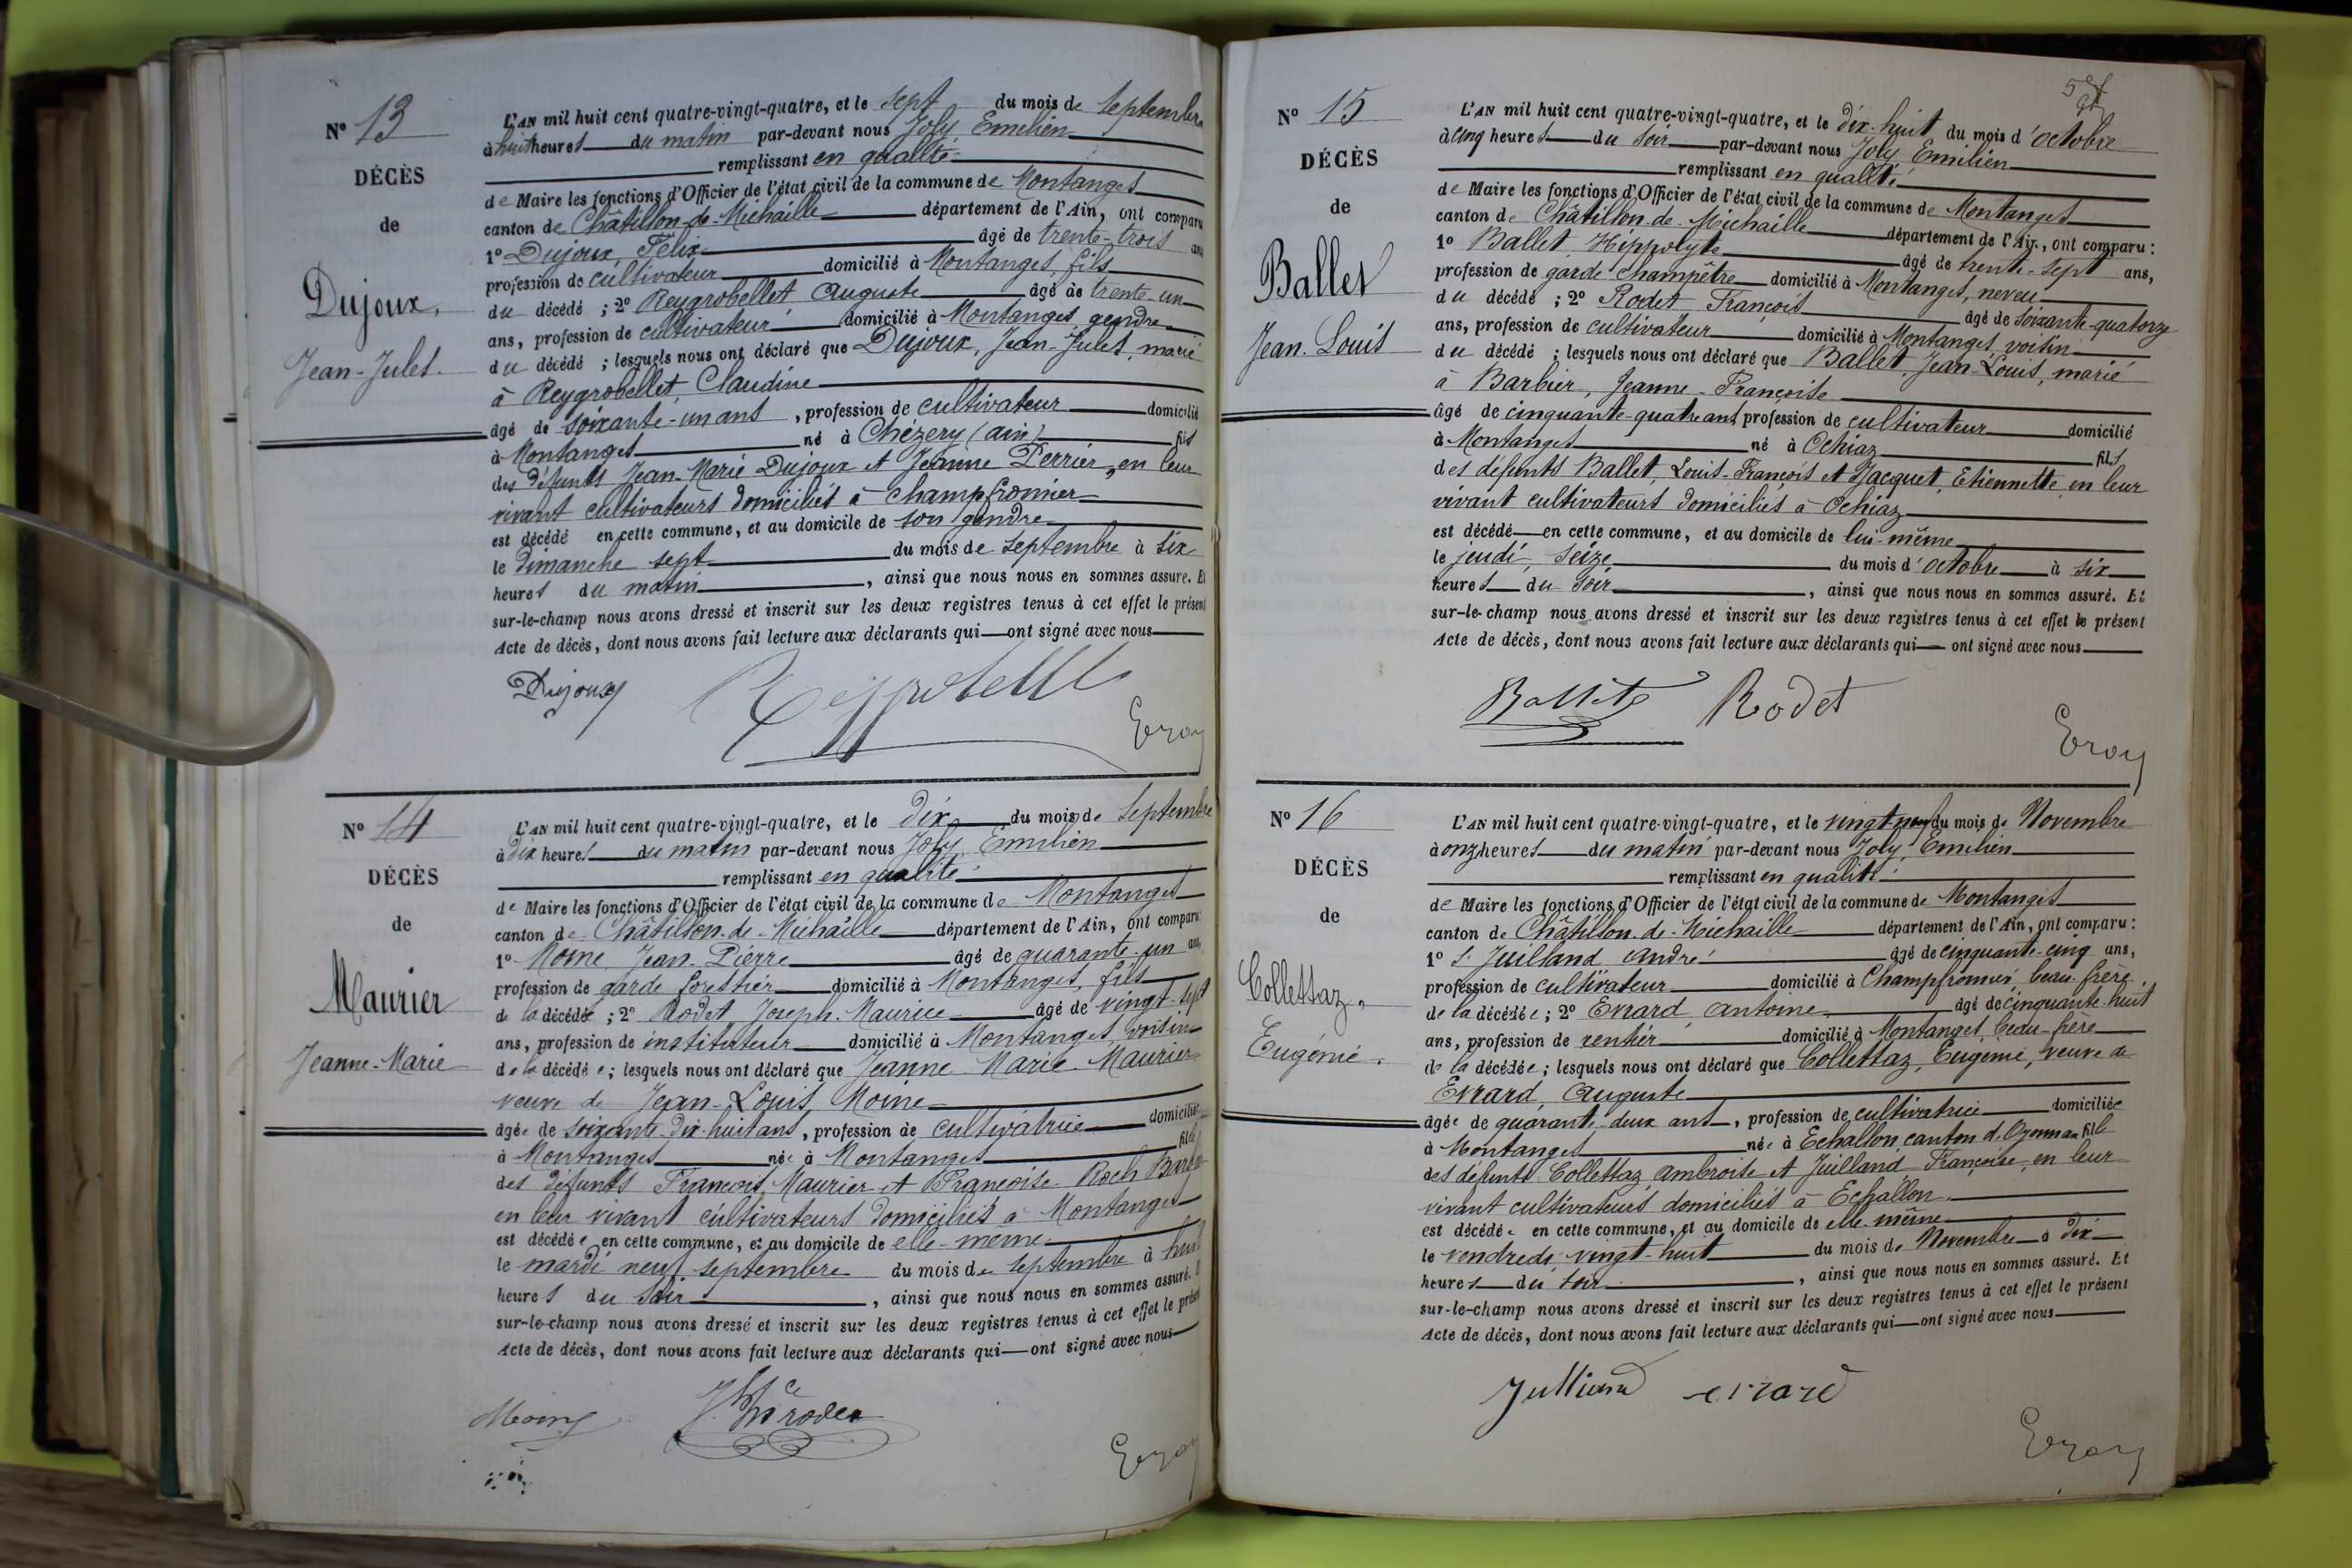 Nº 13
DÉCÈS
de
Dujoux,
Jean-Jules.
L'AN mil huit cent quatre-vingt-quatre, et le sept du mois de septembre
à huit heures du matin par-devant nous Joly Emilien
remplissant en qualité
de Maire les fonctions d'Officier de l'état civil de la commune de Montanges
canton de Châtillon-de-Michaille département de l'Ain, ont comparu
1º Dujoux, Félix âgé de trente-trois ans
profession de cultivateur domicilié à Montanges, fils
du décédé ; 2º Reygrobellet Auguste âgé de trente-un
ans, profession de cultivateur domicilié à Montanges, gendre
du décédé ; lesquels nous ont déclaré que Dujoux, Jean-Jules, marié
à Reygrobellet, Claudine
âgé de soixante-un ans, profession de cultivateur domicilié
à Montanges né à Chézery (ain) fils
des défunts Jean-Marie Dujoux et Jeanne Perrier, en leur
vivant cultivateurs domiciliés à Champfromier
est décédé en cette commune, et au domicile de son gendre
le dimanche sept du mois de septembre à six
heures du matin, ainsi que nous nous en sommes assuré. Et
sur-le-champ nous avons dressé et inscrit sur les deux registres tenus à cet effet le présent
Acte de décès, dont nous avons fait lecture aux déclarants qui ont signé avec nous
Dujoux
Nº 14
DÉCÈS
de
Maurier
Jeanne-Marie
L'AN mil huit cent quatre-vingt-quatre, et le dix du mois de septembre
à dix heures du matin par-devant nous Joly, Emilien
remplissant en qualité
de Maire les fonctions d'Officier de l'état civil de la commune de Montanges
canton de Châtillon-de-Michaille département de l'Ain, ont comparu:
1º Moine Jean-Pierre âgé de quarante-un ans,
profession de garde forestier domicilié à Montanges, fils
de la décédée ; 2º Rodet Joseph-Maurice âgé de vingt-sept
ans, profession de instituteur domicilié à Montanges, voisin
de la décédée ; lesquels nous ont déclaré que Jeanne Marie Maurier
veuve de Jean-Louis Moine
âgée de soixante-dix-huit ans, profession de cultivatrice domiciliée
à Montanges née à Montanges fille
des défunts François Maurier et Françoise Roch
en leur vivant cultivateurs domiciliés à Montanges
est décédée en cette commune, et au domicile de elle-même
le mardi neuf septembre du mois de septembre à huit
heures du soir, ainsi que nous nous en sommes assuré.
sur-le-champ nous avons dressé et inscrit sur les deux registres tenus à cet effet le présent
Acte de décès, dont nous avons fait lecture aux déclarants qui ont signé avec nous
Nº 15
DÉCÈS
de
Ballet
Jean-Louis
L'AN mil huit cent quatre-vingt-quatre, et le dix-huit du mois d'octobre
à cinq heures du soir par-devant nous Joly Emilien
remplissant en qualité
de Maire les fonctions d'Officier de l'état civil de la commune de Montanges
canton de Châtillon-de-Michaille département de l'Ain, ont comparu:
1º Ballet Hippolyte âgé de trente-sept ans,
profession de garde champêtre domicilié à Montanges, neveu
du décédé ; 2º Rodet François âgé de soixante-quatorze
ans, profession de cultivateur domicilié à Montanges, voisin
du décédé ; lesquels nous ont déclaré que Ballet, Jean-Louis, marié
à Barbier, Jeanne-Françoise
âgé de cinquante-quatre ans profession de cultivateur domicilié
à Montanges né à Ochiaz fils
des défunts Ballet, Louis-François et Jacquet, Etiennette en leur
vivant cultivateurs domiciliés à Ochiaz
est décédé en cette commune, et au domicile de lui-même
le jeudi, seize du mois d'octobre à six
heures du soir, ainsi que nous nous en sommes assuré. Et
sur-le-champ nous avons dressé et inscrit sur les deux registres tenus à cet effet le présent
Acte de décès, dont nous avons fait lecture aux déclarants qui ont signé avec nous
Rodet
Nº 16
DÉCÈS
de
Collettaz,
Eugénie.
L'AN mil huit cent quatre-vingt-quatre, et le vingt-neuf du mois de Novembre
à onz heures du matin par-devant nous Joly, Emilien
remplissant en qualité
de Maire les fonctions d'Officier de l'état civil de la commune de Montanges
canton de Châtillon-de-Michaille département de l'Ain, ont comparu:
1º Juilland André âgé de cinquante-cinq ans,
profession de cultivateur domicilié à Champfromier, beau-frère
de la décédée ; 2º Evrard, Antoine âgé de cinquante-huit
ans, profession de rentier domicilié à Montanges, beau-frère
de la décédée ; lesquels nous ont déclaré que Collettaz, Eugénie, veuve de
Evrard, Auguste
âgée de quarante-deux ans, profession de cultivatrice domiciliée
à Montanges née à Echallon canton d'Oyonnax fille
des défunts Collettaz, Ambroise et Juilland Françoise, en leur
vivant cultivateurs domiciliés à Echallon.
est décédée en cette commune, et au domicile de elle-même
le vendredi vingt-huit du mois de Novembre à dix
heures du soir, ainsi que nous nous en sommes assuré. Et
sur-le-champ nous avons dressé et inscrit sur les deux registres tenus à cet effet le présent
Acte de décès, dont nous avons fait lecture aux déclarants qui ont signé avec nous
Julliand evrard